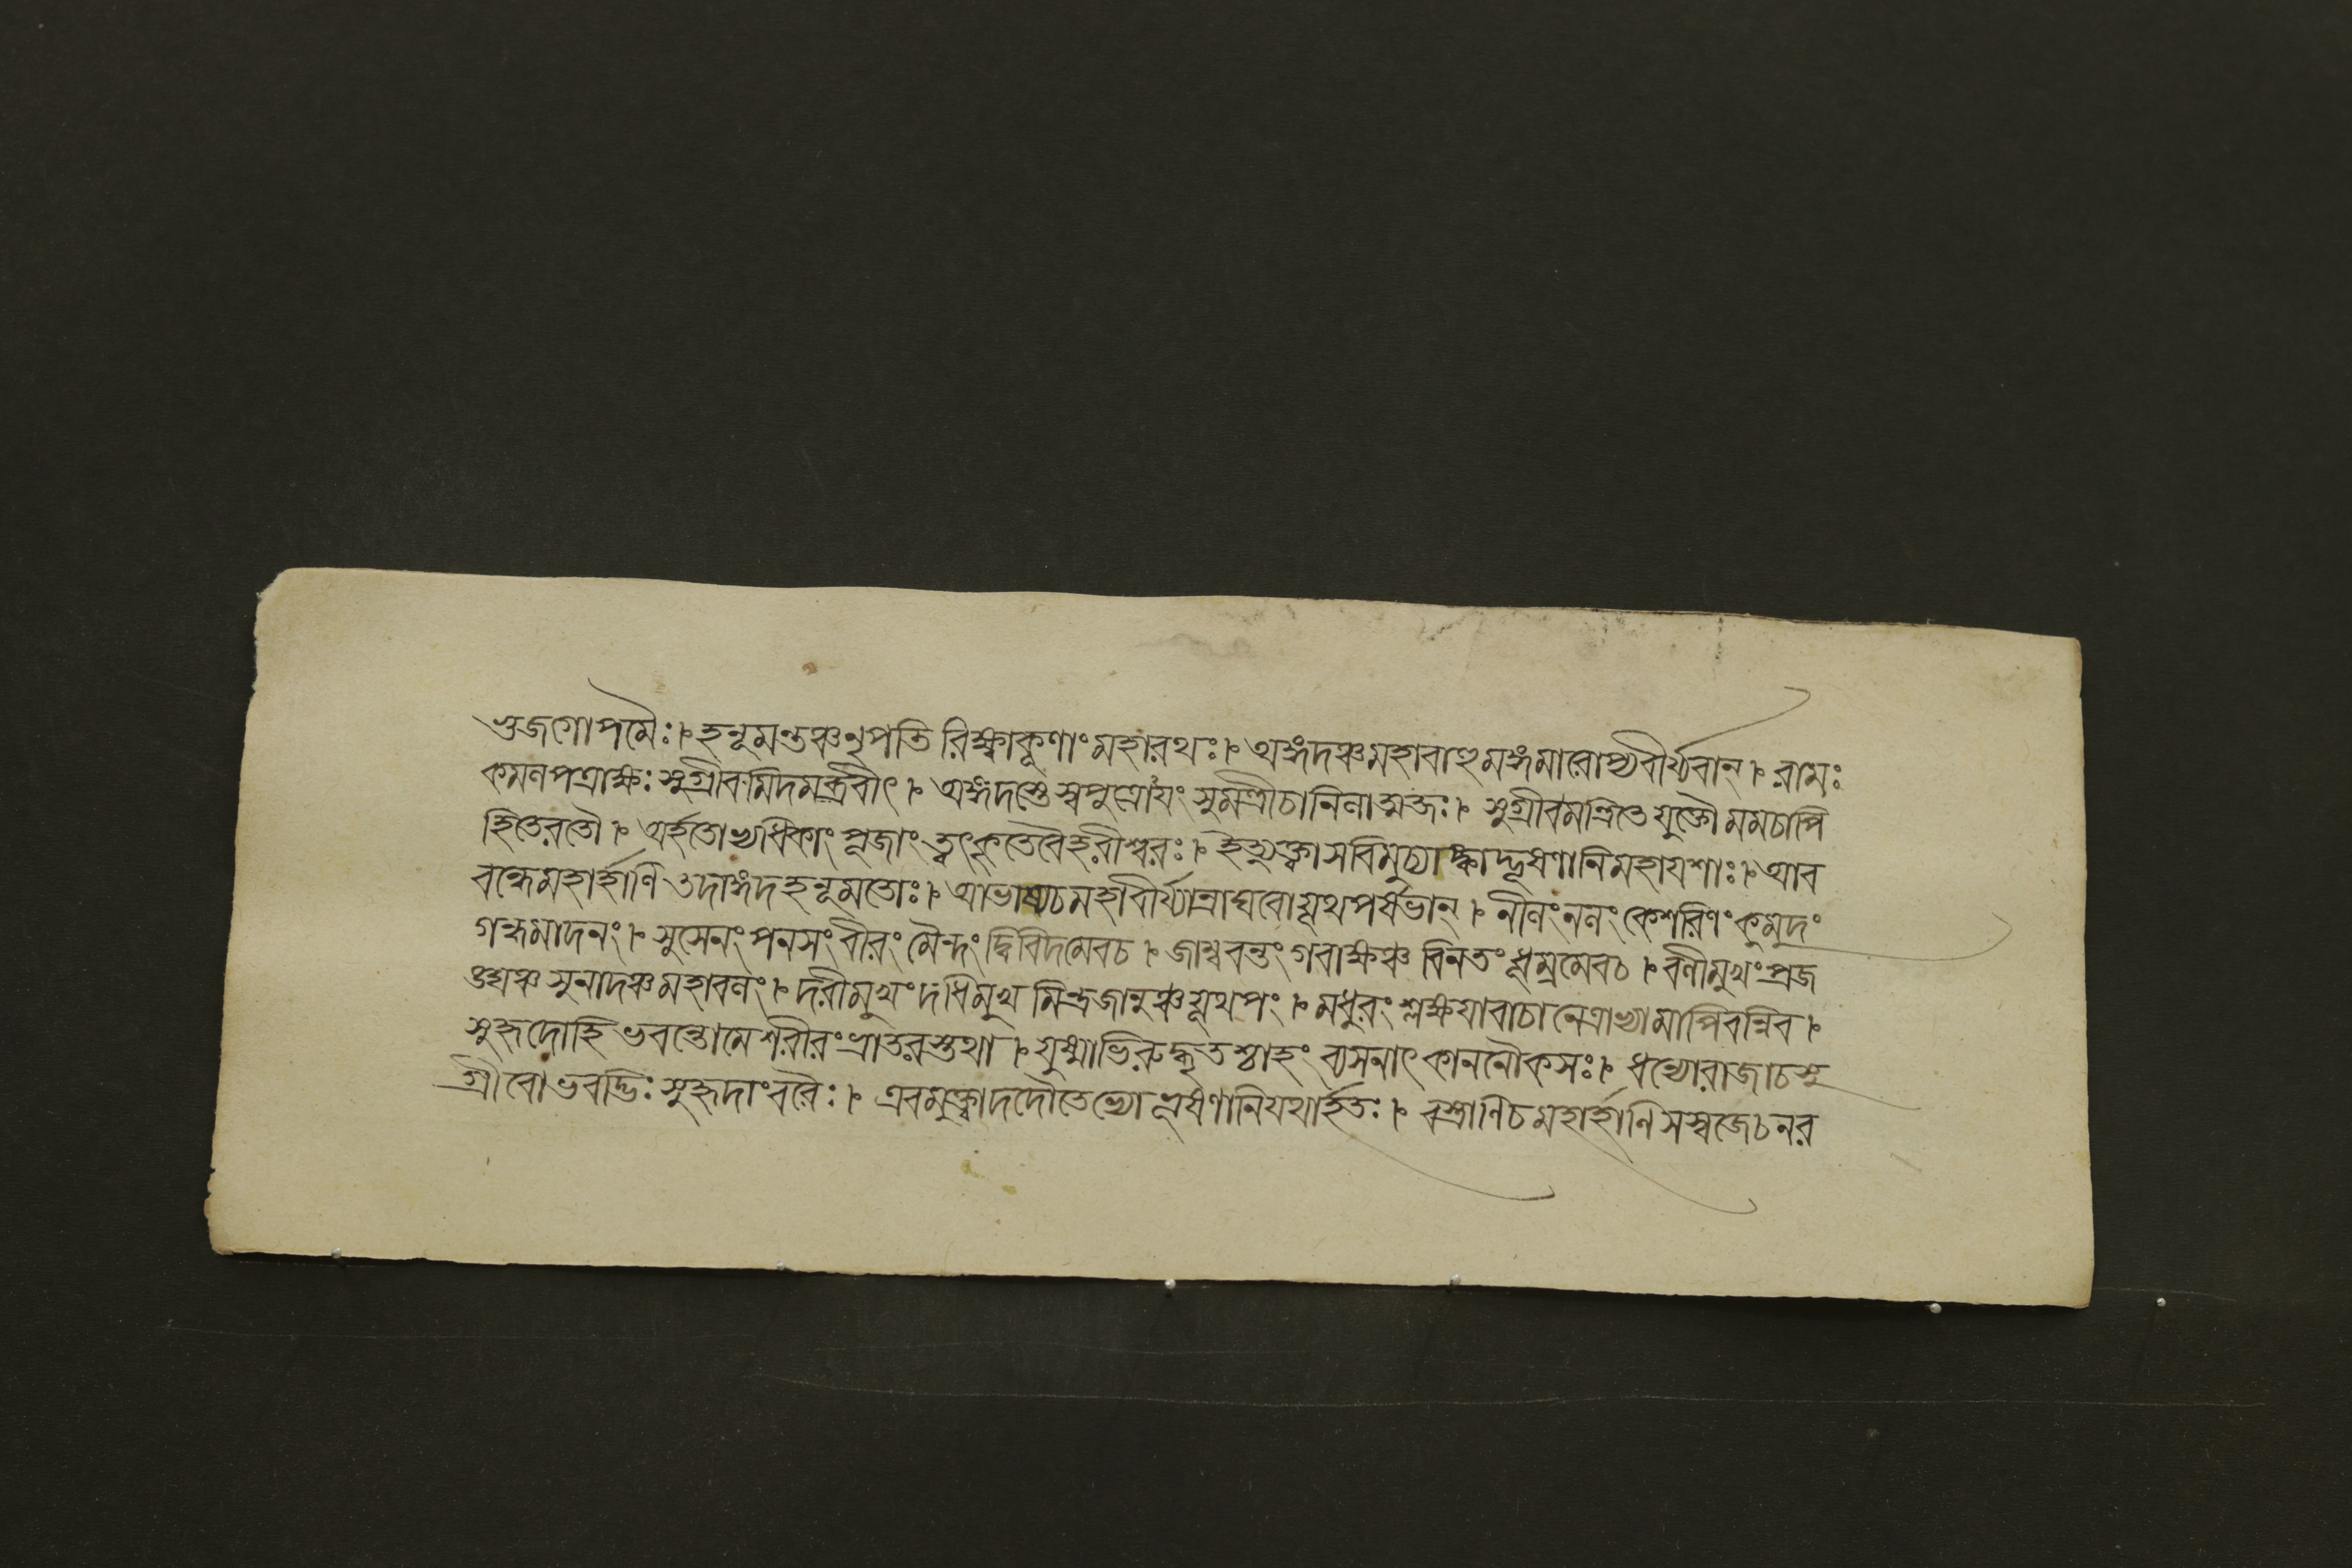 ভুজগোপমৈঃ। হনূমন্তঞ্চনৃপতি রিক্ষ্বাকূণাং মহারথঃ। অঙ্গদঞ্চমহাবাহুমঙ্গমারোপ্যবীর্য্যবান্। রামঃ
কমলপত্রাক্ষঃ সুগ্রীবমিদমব্রবীৎ। অঙ্গদস্তে সুপুত্রোয়ং সুমন্ত্রীচানিলাত্মজঃ। সুগ্রীবমন্ত্রিতে যুক্তৌ মমচাপি
হিতেরতৌ। অর্হতোভ্যধিকাং পূজাং ত্বৎকৃতেবৈহরীশ্বরঃ। ইত্যুক্ত্বা সবিমুচ্যাঙ্গাদ্ভূষণানিমহাযশাঃ। আব
বন্ধেমহার্হাণি তদাঙ্গদহনূমতোঃ। আভাষ্যচমহাবীর্য্যান্রাঘবোযূথপর্ষভান্। নীলংনলং কেশরিণং কুমুদং
গন্ধমাদনং। সুসেনং পনসং বীরং মৈন্দং দ্বিবিদমেবচ। জাম্ববন্তং গবাক্ষঞ্চ বিনতং ধূম্রমেবচ। বলীমুখং প্রজ
ঙ্ঘঞ্চ সুনাদঞ্চমহাবলং। দরীমুখং দধিমুখ মিন্দ্রজানুঞ্চযূথপং। মধুরং শ্লক্ষ্ণয়াবাচা নেত্রাভ্যামাপিবন্নিব।
সুহৃদোহি ভবন্তোমে শরীরং ভ্রাতরস্তথা। যুষ্মাভিরুদ্ধৃতশ্চাহং ব্যসনাৎ কাননৌকসঃ। ধন্যোরাজাচসু
গ্রীবো ভবদ্ভিঃ সুহৃদাংবরৈঃ। এবমুক্ত্বাদদৌতেভ্যো ভূষণানিযথার্হতঃ। বস্ত্রাণিচমহার্হাণি সস্বজেচনর